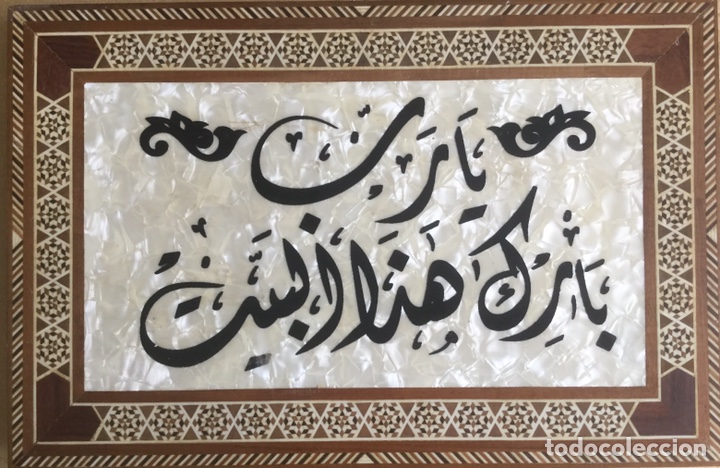 يَا رَبّ
بَارِك هَذَا الْبَيْت
todocoleccion